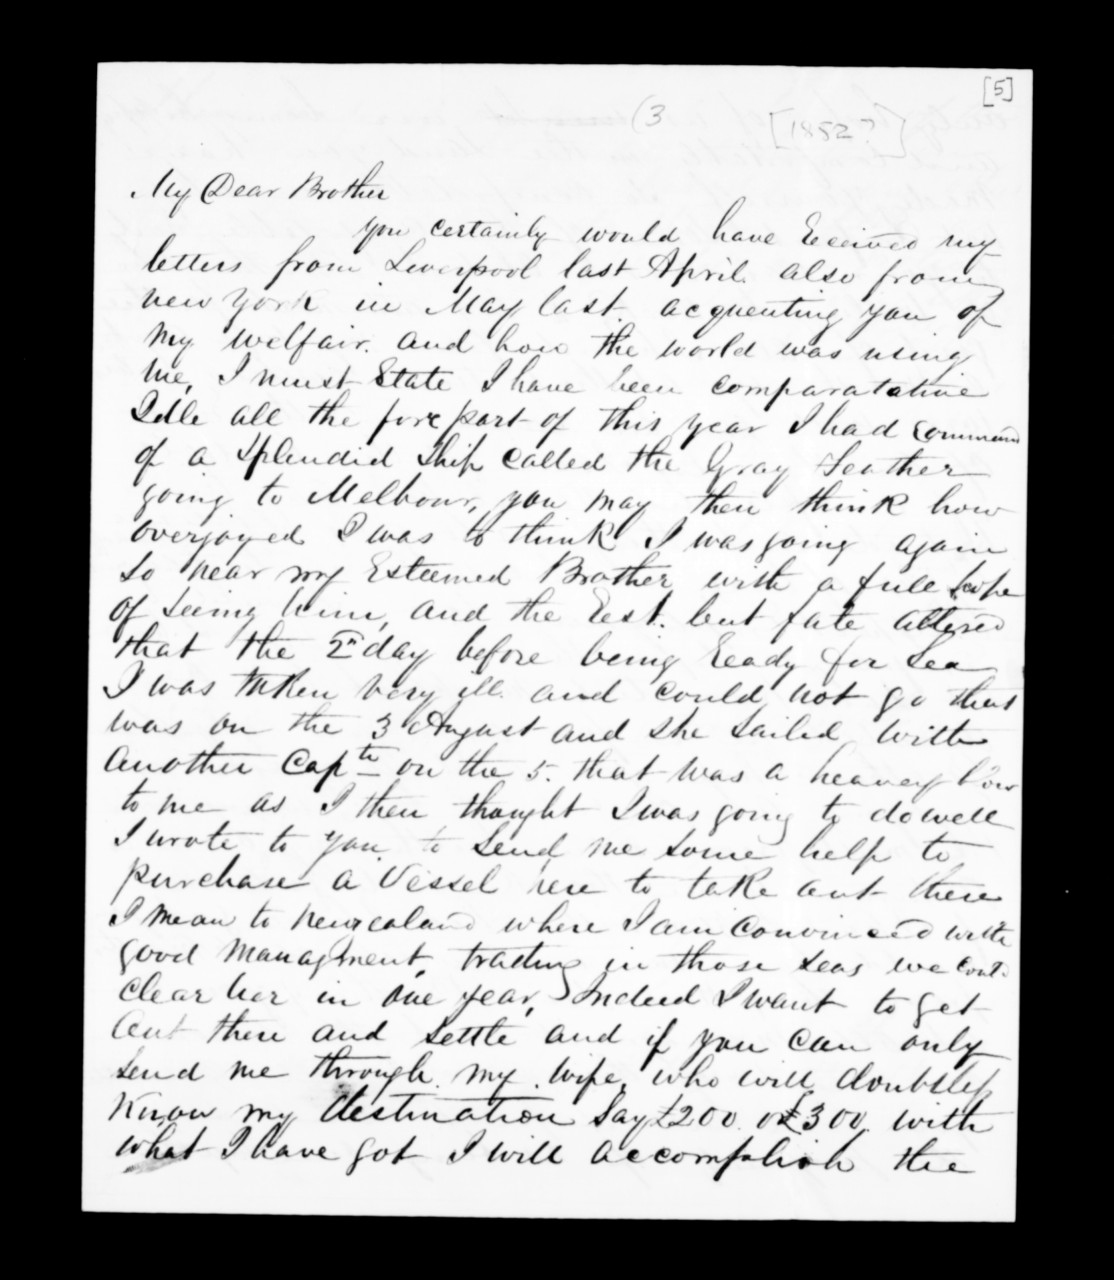 [5]
(3
[1852?]
My Dear Brother
you certainly would have Received my
letters from Liverpool last April also from
new york in May last. acquenting you of
my welfair. and how the world was using
me, I must State I have been comparatative
Idle all the fore part of this year I had command
of a Splendid Ship called the Gray Feather
going to Melbour, you may then think how
overjoyed I was to think I was going again
so near my Esteemed Brother with a full scope
of seeing him, and the Rest. but fate altered
that the 2nd day before being Ready for Sea
I was taken very ill and could not go that
was on the 3 August and she Sailed with
another Captn on the 5. that was a heavey blow
to me as I then thought I was going to do well
I wrote to you to Send me some help to
purchase a Vessel here to take out there
I mean to Newzealand where I am Convinced with
good Managment, trading in those Seas we could
clear her in one year, Indeed I want to get
out there and settle and if you can only
send me through my wife, who will doubtless
Know my destination Say £200 or £300 with
what I have got I will accomplish the